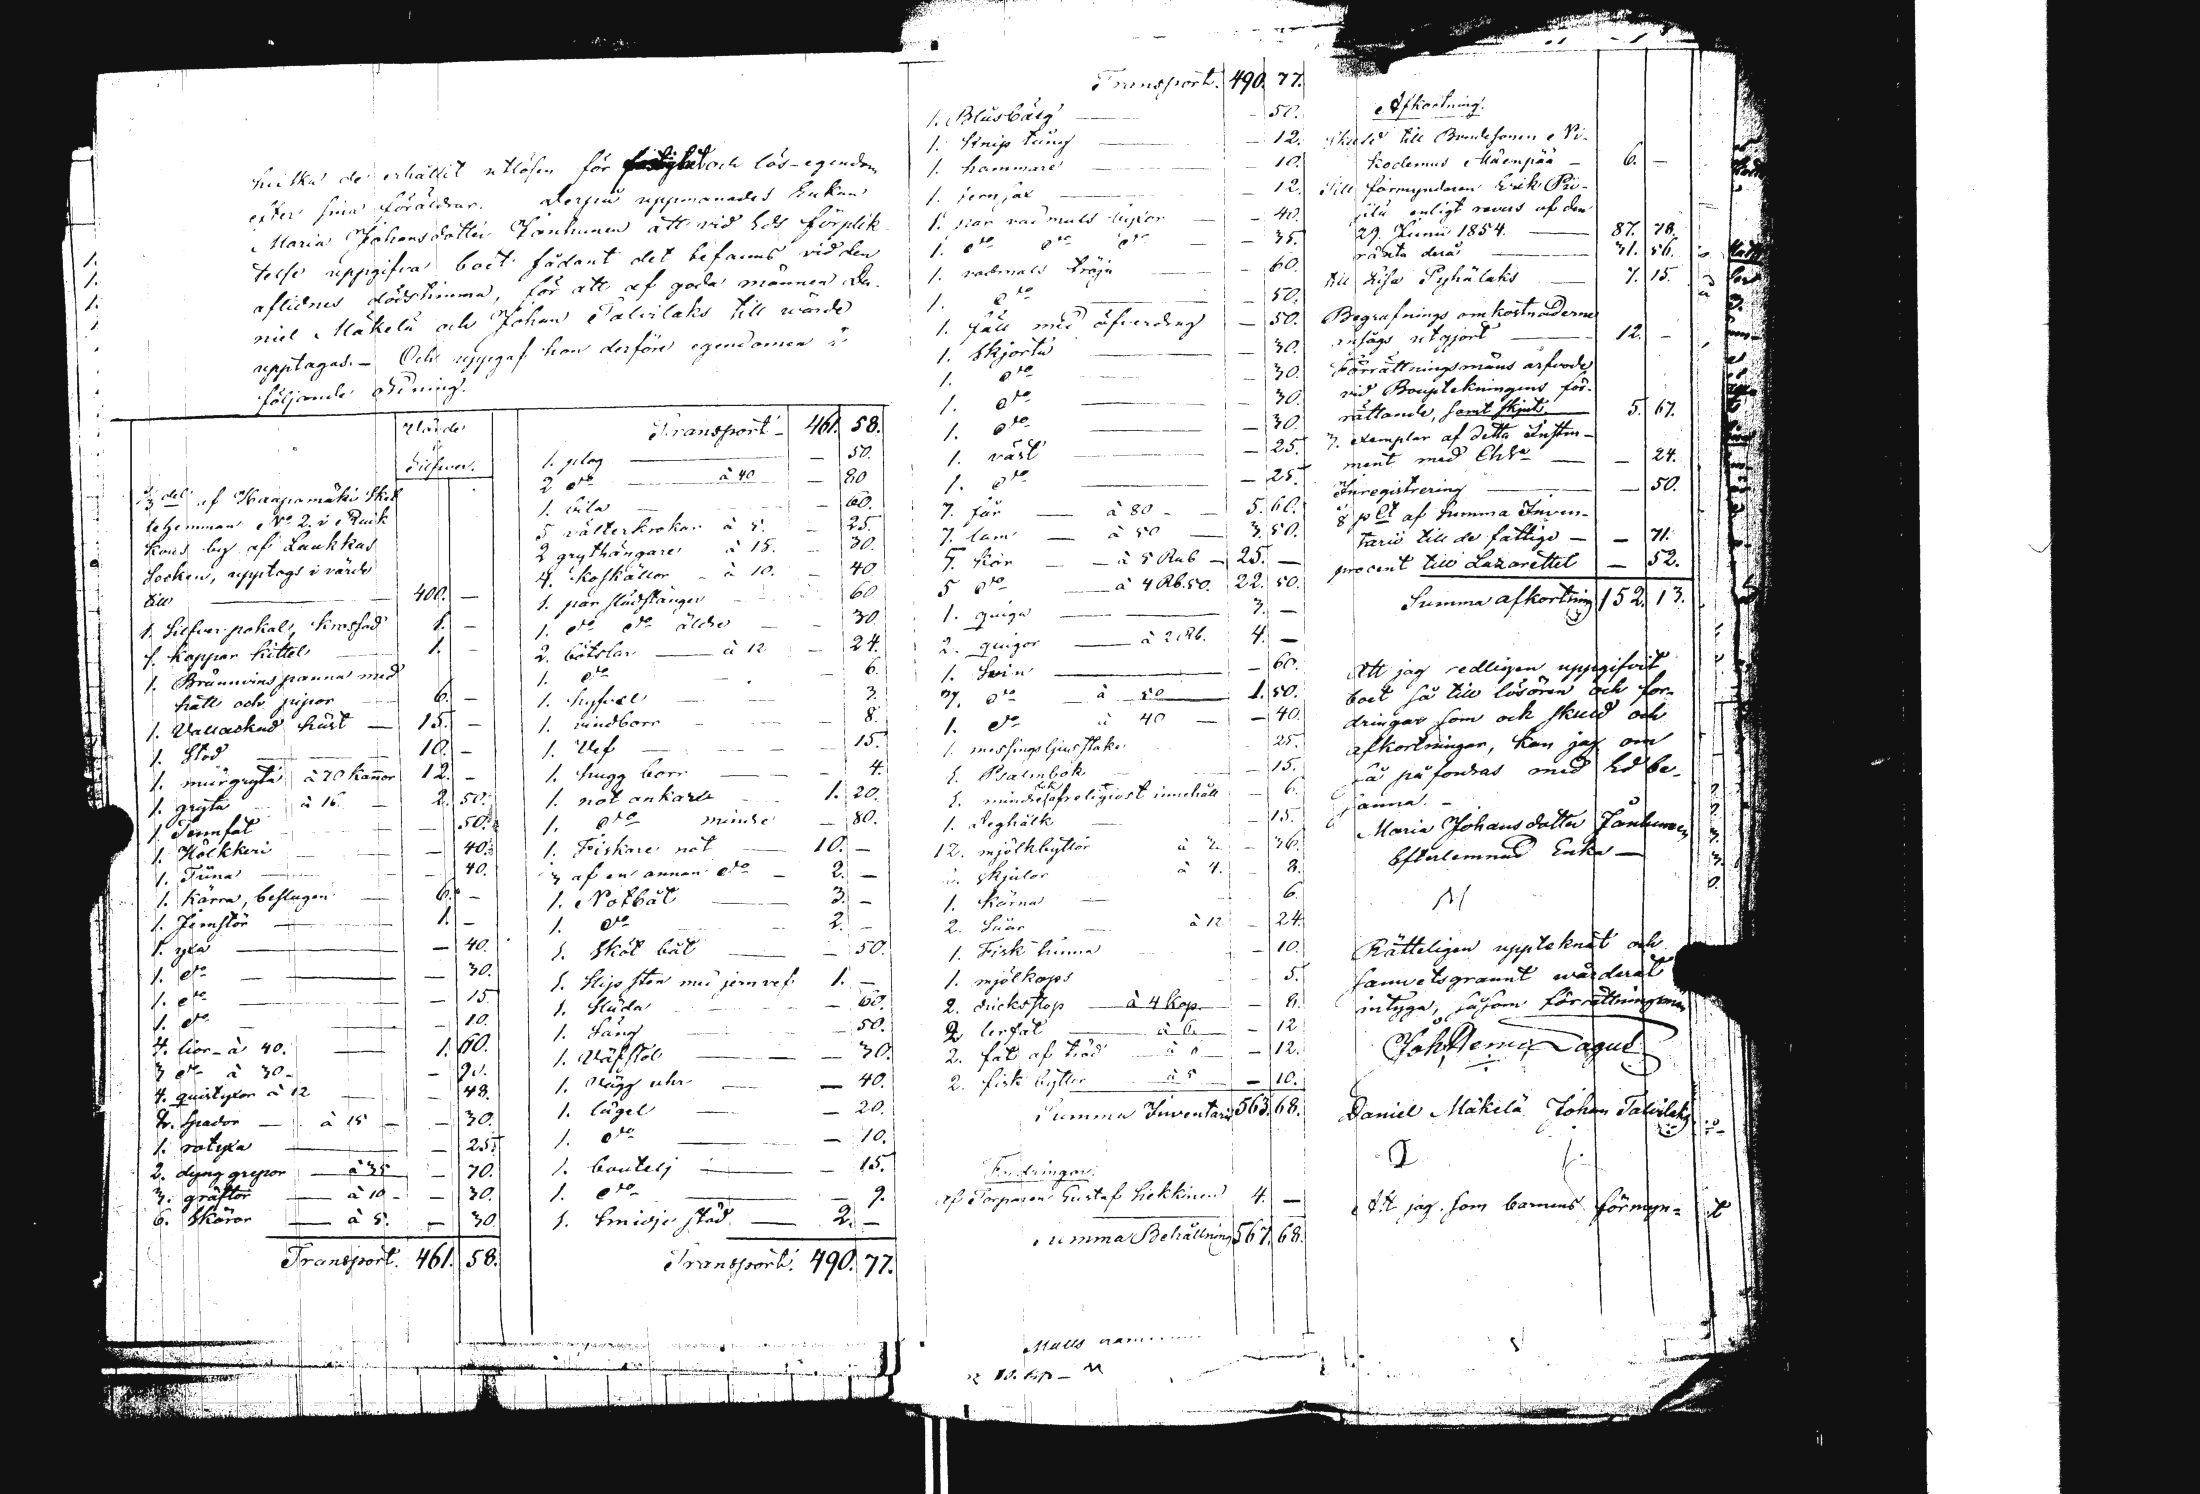 hvilka de erhållit utlösen för och lös-egendom
efter sina föräldrar. Derpå uppmanades Enkan
Maria Johansdotter Jänhunen att vid Eds förplik-
telse uppgifva boet sådant det befanns vid den
aflidnes dödstimma, för att af goda männen Da-
niel Mäkelä och Johan Talvilaks till värde
upptagas. - Och uppgaf hon derföre egendomen i
följande ordning.
Värde
Silfver.
del af Haapamäki Skat
tehemman No 2. i Ruik
kous by af Laukkas
Socken, upptogs i värde
till 400. -
1. Silfver pokal, krossad 1. -
1. Koppar kittel 1. -
1. Brännvins panna med
hatt och pipor 6. -
1. Vallackad häst 15. -
1. Stod 10. -
1. murgryta à 70 kannor 12. -
1. gryta à 16 2. 50.
1 Tennfat - 50.
1. Kölkkeri - 40.
1. Tina - 40.
1. kärra, beslagen 6. -
1. Jernstör 1. -
1. yxa - 40.
1. do - 30.
1. do - 15
1. do - 10.
4. lior - à 40. 1. 60.
3 do à 30 - 90.
4. quistyxor à 12 48.
2. spador à 15 - 30.
1. rotyxa - 25
2. dyng grepor à 35 - 70.
3. gräftor à 10 - 30.
6. Skäror à 5. - 30
Transport. 461. 58.
Transport - 461. 58.
1. plog - 50.
2 do à 40 - 80
1. bila - 60.
5 välterkrokar à 5. - 25
2 grythängare à 15. - 30.
4. koskällor à 10. - 40
1. par slädstänger 60
1. do do äldre - 30
2. bötslar à 12 - 24.
1. do 6.
1. hyfvel 3.
1. vindborr 8.
1. Vef 15.
1. hugg borr - 4.
1. not ankare 1. 20.
1. do mindre - 80.
1. Fiskare not 10. -
af en annan do - 2. -
1. Notbåt 3. -
1. do 2. -
1. Sköt båt - 50.
1. Slipsten med jernvef 1. -
1. Släda - 60.
1. Säng - 50.
1. Väfstol - 30.
1. Vägg uhr - 40.
1. lägel - 20.
1. do - 10.
1. boutelj - 15.
1. do - 9.
1. Smidje städ 2. -
Transport. 490. 77.
Transport. 490. 77.
1. Blåsbälg - 50.
1. Knip tång - 12.
1. hammare - 10.
1. jern sax - 12.
1. par vadmals byxor - 40.
1. do do do - 35.
1. vadmals tröja - 60.
1. do 50.
1. fäll med öfverdrag - 50.
1. Skjorta - 30.
1. do - 30.
1. do - 30.
1. do - 30
1. väst - 25.
1. do - 25.
7. får à 80 - 5. 60.
7. lam à 50 3. 50.
5. Kor à 5 Rub - 25. -
5 do à 4 Rb. 50. 22. 50.
1. quiga 3. -
2. quigor à 2 Rb. 4. -
1. Svin - 60.
do à 50 1. 50.
1. do à 40 - 40.
1. messings ljusstake 25.
1. Psalmbok - 15.
1. mindre af religiöst innehåll - 6.
1. Deghålk - 15.
12. mjölkbyttor à 3 - 36.
2. skjulor à 4. - 8.
1. Kärna 6.
2. Såar à 12 - 24.
1. Fisk tunna - 10.
1. mjölkaps - 5.
2. dricksstop à 4 kop. - 8.
2. lerfat à 6. - 12
2. fat af träd à 6 - 12.
2. fisk byttor à 5 - 10.
Summa Inventarie 563. 68.
Fordringar.
af Torparen Gustaf Liekkinen 4. -
Summa Behållning 567. 68.
Afkortning.
Skuld till Bondesonen Ni-
kodemus Mäenpää - 6. -
Till förmyndaren Erik Pii-
pila enligt revers af den
29. Junii 1854. 87. 78.
ränta derå 31. 56.
till Lisa Pyhälaks 7. 15.
Begrafnings omkostnaderne
ansågs utgjort 12. -
Förrättningsmans arfvode
vid Bouptekningens för-
rättande, samt skjuts 5. 67.
3. exemplar af detta Instru-
ment med Cha - 24.
Inregistrering - 50.
af summa Inven-
tarii till de fattige - - 71.
procent till Lazarettet - 52.
Summa afkortning 152. 13.
Att jag redligen uppgifvit
boet så till lösören och for-
dringar som och skuld och
afkortningar, kan jag om
så påfordras med Ed be-
sanna. -
Maria Johansdotter Jänhunen
Efterlemnad Enka -
Rätteligen uppteknat och
samvetsgrannt värderat
intyga, såsom förrättningsman
Joh Hemr. Lagus
Daniel Mäkelä Johan Talvilaks
Att jag som barnens förmyn=